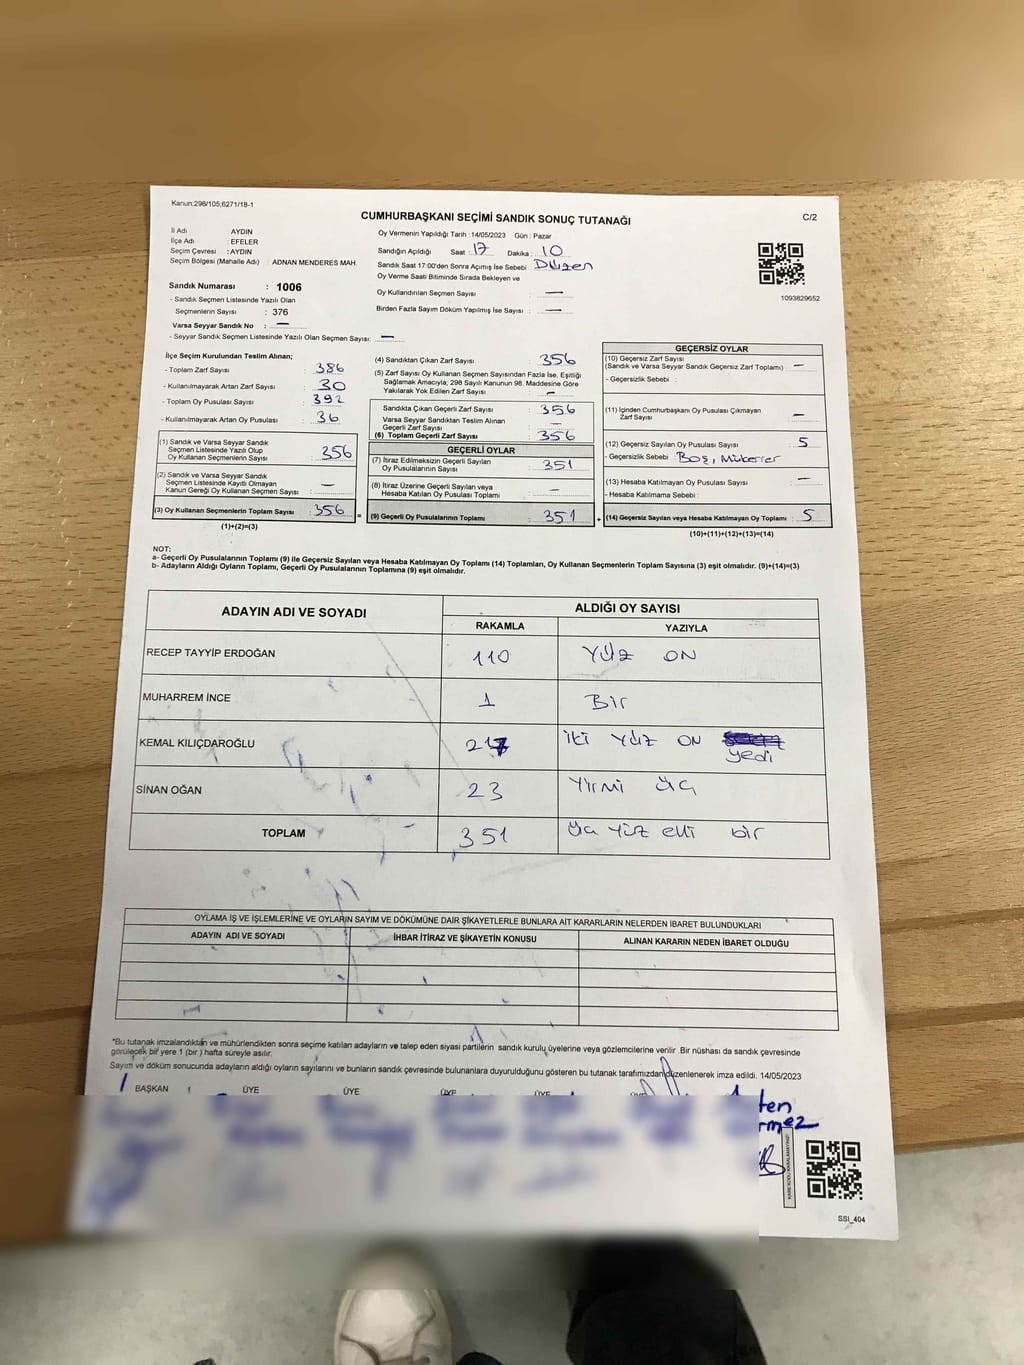 Kanun;298/105,6271/18-1
CUMHURBAŞKANI SEÇİMİ SANDIK SONUÇ TUTANAĞI
C/2
İl Adı AYDIN
İlçe Adı : EFELER
Seçim Çevresi : AYDIN
Seçim Bölgesi (Mahalle Adı) : ADNAN MENDERES MAH.
Oy Vermenin Yapıldığı Tarih :14/05/2023 Gün : Pazar
Sandığın Açıldığı Saat : 17 Dakika : 10
Sandık Saat 17:00'den Sonra Açımış İse Sebebi : Düzen
Oy Verme Saati Bitiminde Sırada Bekleyen ve
Oy Kullandırılan Seçmen Sayısı : —
Birden Fazla Sayım Döküm Yapılmış İse Sayısı : —
1093829652
Sandık Numarası : 1006
- Sandık Seçmen Listesinde Yazılı Olan
Seçmenlerin Sayısı : 376
Varsa Seyyar Sandık No : —
- Seyyar Sandık Seçmen Listesinde Yazılı Olan Seçmen Sayısı: —
İlçe Seçim Kurulundan Teslim Alınan;
- Toplam Zarf Sayısı : 386
- Kullanılmayarak Artan Zarf Sayısı : 30
- Toplam Oy Pusulası Sayısı : 392
- Kullanılmayarak Artan Oy Pusulası : 36
(1) Sandık ve Varsa Seyyar Sandık
Seçmen Listesinde Yazılı Olup
Oy Kullanan Seçmenlerin Sayısı : 356
(2) Sandık ve Varsa Seyyar Sandık
Seçmen Listesinde Kayıtlı Olmayan
Kanun Gereği Oy Kullanan Seçmen Sayısı : —
(3) Oy Kullanan Seçmenlerin Toplam Sayısı : 356
(1)+(2)=(3)
=
(4) Sandıktan Çıkan Zarf Sayısı : 356
(5) Zarf Sayısı Oy Kullanan Seçmen Sayısından Fazla İse, Eşitliği
Sağlamak Amacıyla; 298 Sayılı Kanunun 98. Maddesine Göre
Yakılarak Yok Edilen Zarf Sayısı : —
Sandıkta Çıkan Geçerli Zarf Sayısı : 356
Varsa Seyyar Sandıktan Teslim Alınan
Geçerli Zarf Sayısı : —
(6) Toplam Geçerli Zarf Sayısı : 356
GEÇERLİ OYLAR
(7) İtiraz Edilmeksizin Geçerli Sayılan
Oy Pusulalarının Sayısı : 351
(8) İtiraz Üzerine Geçerli Sayılan veya
Hesaba Katılan Oy Pusulası Toplamı : —
(9) Geçerli Oy Pusulalarının Toplamı : 351
+
GEÇERSİZ OYLAR
(10) Geçersiz Zarf Sayısı
(Sandık ve Varsa Seyyar Sandık Geçersiz Zarf Toplamı) : —
- Geçersizlik Sebebi :
(11) İçinden Cumhurbaşkanı Oy Pusulası Çıkmayan
Zarf Sayısı : —
(12) Geçersiz Sayılan Oy Pusulası Sayısı : 5
- Geçersizlik Sebebi : Boş, Mükerrer
(13) Hesaba Katılmayan Oy Pusulası Sayısı : —
- Hesaba Katılmama Sebebi :
(14) Geçersiz Sayılan veya Hesaba Katılmayan Oy Toplamı : 5
(10)+(11)+(12)+(13)=(14)
NOT:
a- Geçerli Oy Pusulalarının Toplamı (9) ile Geçersiz Sayılan veya Hesaba Katılmayan Oy Toplamı (14) Toplamları, Oy Kullanan Seçmenlerin Toplam Sayısına (3) eşit olmalıdır. (9)+(14)=(3)
b- Adayların Aldığı Oyların Toplamı, Geçerli Oy Pusulalarının Toplamına (9) eşit olmalıdır.
ADAYIN ADI VE SOYADI ALDIĞI OY SAYISI
RAKAMLA YAZIYLA
RECEP TAYYİP ERDOĞAN 110 YÜZ ON
MUHARREM İNCE 1 Bir
KEMAL KILIÇDAROĞLU 217 iki YÜZ ON yedi
SİNAN OĞAN 23 Yirmi üç
TOPLAM 351 yüz elli bir
OYLAMA İŞ VE İŞLEMLERİNE VE OYLARIN SAYIM VE DÖKÜMÜNE DAİR ŞİKAYETLERLE BUNLARA AİT KARARLARIN NELERDEN İBARET BULUNDUKLARI
ADAYIN ADI VE SOYADI İHBAR İTİRAZ VE ŞİKAYETİN KONUSU ALINAN KARARIN NEDEN İBARET OLDUĞU
*Bu tutanak imzalandıktan ve mühürlendikten sonra seçime katılan adayların ve talep eden siyasi partilerin sandık kurulu üyelerine veya gözlemcilerine verilir .Bir nüshası da sandık çevresinde
görülecek bir yere 1 (bir ) hafta süreyle asılır.
Sayım ve döküm sonucunda adayların aldığı oyların sayılarını ve bunların sandık çevresinde bulunanlara duyurulduğunu gösteren bu tutanak tarafımızdan düzenlenerek imza edildi. 14/05/2023
BAŞKAN ÜYE ÜYE ÜYE ÜYE
SSI_404